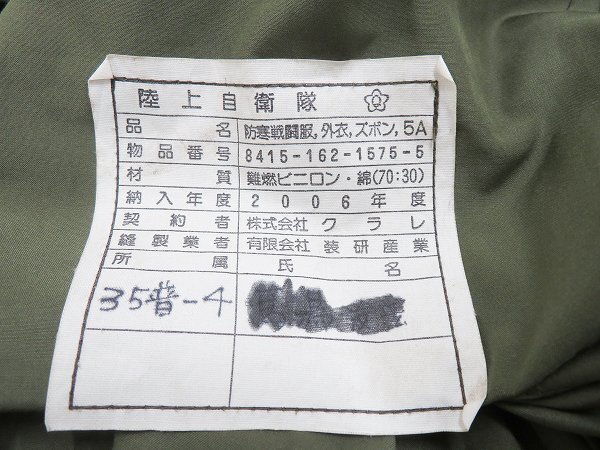 陸上自衛隊
品名 防寒戦闘服,外衣,ズボン,5A
物品番号 8415-162-1575-5
材質 難燃ビニロン・綿(70:30)
納入年度 2006年度
契約者 株式会社 クラレ
縫製業者 有限会社 装研産業
所属 氏名
35普-4